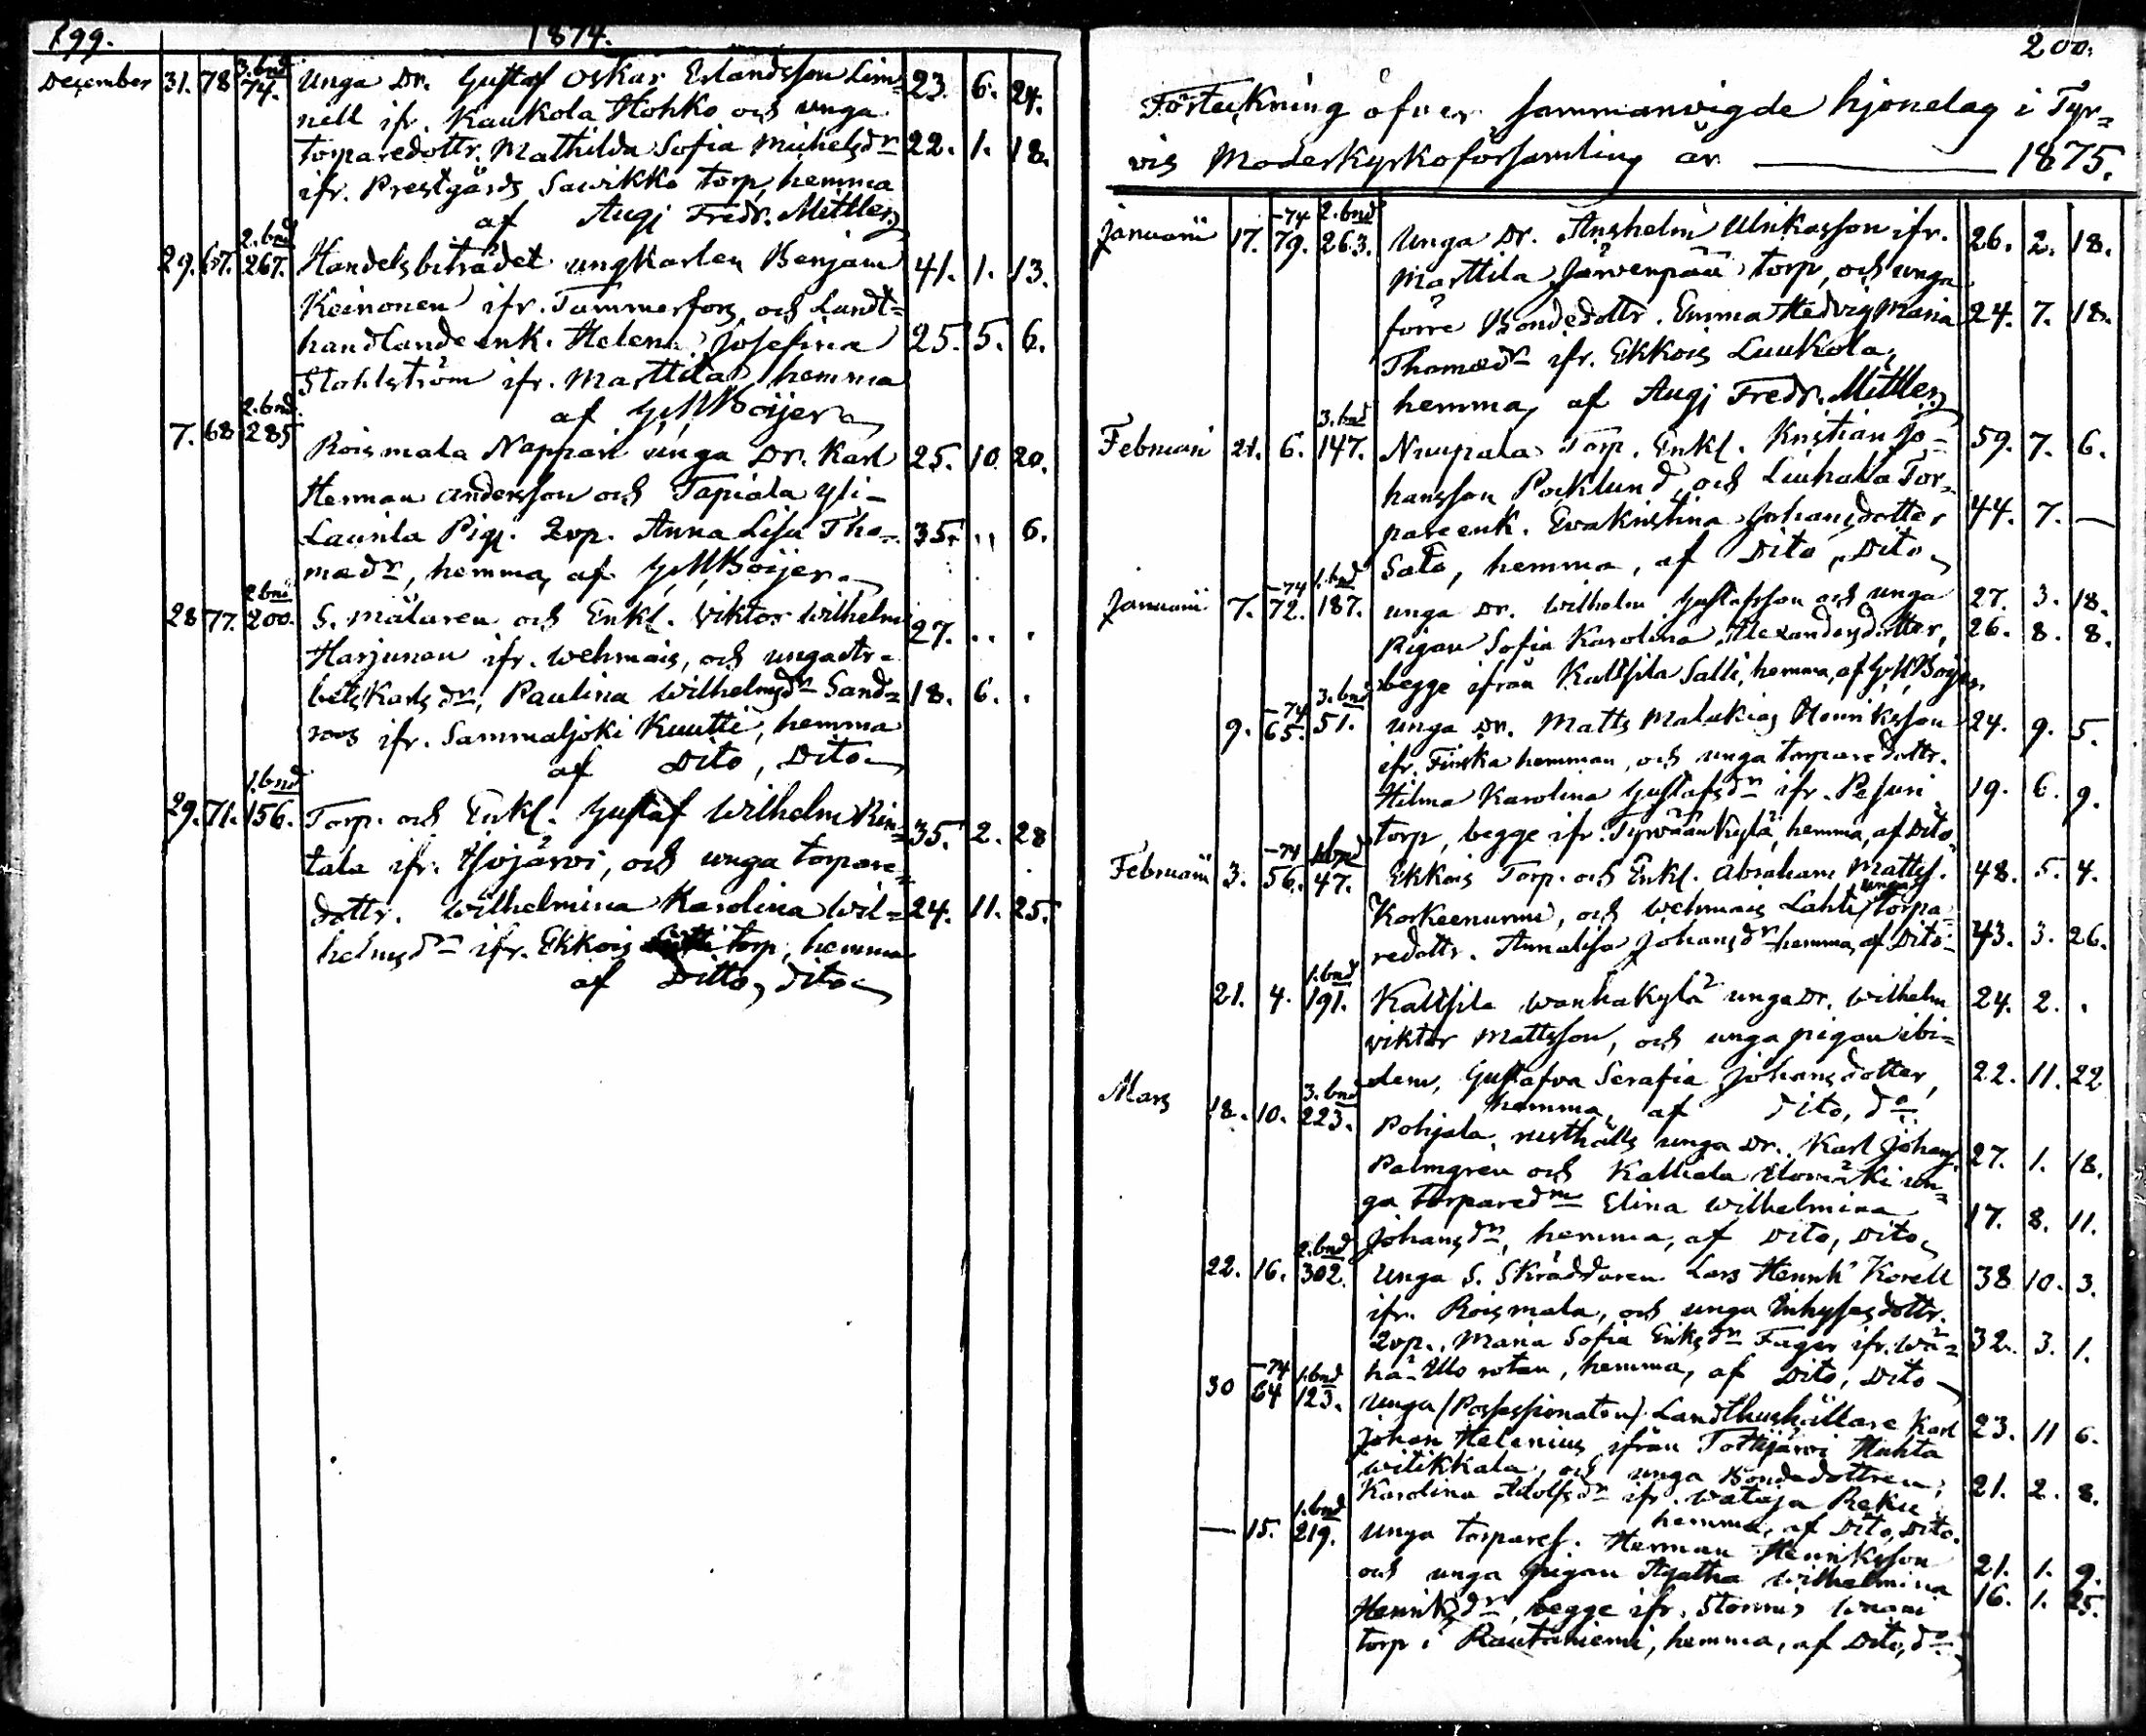 199.
1874.
December 31. 78 3. bnd 74. Unga Dr. Gustaf Oskar Erlandsson Lim= 23. 6. 24.
nell ifr. Kaukola Hohko och unga
torparedottr. Mathilda Sofia Michelsdr 22. 1. 18.
ifr. Prestgårds Sawikko torp, hemma
af Augj Fredr. Mittler
29. 67. 2. bnd 267. Handelsbiträdet ungkarlen Benjam 41. 1. 13.
Keinonen ifr. Tammerfors och Landt=
handlande enk. Helena Josefina 25. 5. 6.
Stahlström ifr. Marttila, hemma
af G. M. Boijer
7. 68 2. bnd. 285 Roismala Nappari unga Dr. Karl 25. 10. 20.
Herman Andersson och Tapiola Yli-
Laurila Pig. 2vp. Anna Lisa Tho= 35. .. 6.
medr, hemma, af G. M. Boijer
28 77. 2 bnd 200. S. målaren och Enkl. Viktor Wilhelm 27. . . .
Harjunen ifr. Wehmais, och unga atr=
bets Karlsdr, Paulina Wilhelmsdr Sand= 18. 6. .
roos ifr. Sammaljoki Kuutti, hemma
af Dito, Dito
29. 71. 1. bnd 156. Torp. och Enkl. Gustaf Wilhelm Rin= 35. 2. 28
tala ifr. Hojärvi, och unga torpare=
dottr. Wilhelmina Karolina Wil= 24. 11. 25.
helmsdr ifr. Ekkois torp, hemma
af Ditto, dito
200.
Förteckning öfver sammanvigde hjonelag i Tyr=
vis Moderkyrkoförsamling år 1875.
Januarii 17. -74 79. 2. bnd 263. Unga Dr. Anshelm Ulrikasson ifr. 26. 2. 18.
Marttila Järvenpää torp, och unga
förre Bondedottr. Emma Hedvig Maria 24. 7. 18.
Thomædr ifr. Ekkois Luukola,
hemma, af Augj Fredr. Mittler
Februari 21. 6. 3. bnd 147. Nuupala Torp. Enkl. Kristian Jo- 59. 7. 6.
hansson Pocklund, och Liuhala Tor=
pare enk. Eva Kristina Johansdotter 44. 7. —
Sato, hemma, af Dito, Dito
Januarii 7. -74 72. 1. bnd 187. unga Dr. Wilhelm Gustafsson och unga 27. 3. 18.
Pigan Sofia Karolina Alexandersdotter, 26. 8. 8.
begge ifrån Kaltsila Salli, hemma, af G. M. Boijer.
9. -74 65. 3. bnd 51. unga Dr. Matts Malakias Henriksson 24. 9. 5.
ifr. Finska hemman, och unga torparedottr.
Hilma Karolina Gustafsdr ifr. Pesuri 19. 6. 9.
torp, begge ifr. Tyrvään Kylä, hemma, af Dito
Februarii 3. -74 56. 1. bnd 47. Ekkois Torp. och Enkl. Abraham Mattss. 48. 5. 4.
Korkeenurmi, och Wehmais Lahti unga torpa=
redottr. Annalisa Johansdr hemma, af Dito- 43. 3. 26.
21. 4. 1. bnd 191. Kaltsila Wanhakylä unga Dr. Wilhelm 24. 2. .
Viktor Mattsson, och unga pigan ibi=
dem, Gustafva Serafia Johansdotter, 22. 11. 22
hemma, af dito, do
Mars 18. 10. 3. bnd 223. Pohjala rusthålls unga Dr. Karl Johans. 27. 1. 18.
Palmgren och Kalliala un=
ga torparedtr Elina Wilhelmina 17. 8. 11.
Johansdr, hemma, af Dito, Dito
22. 16. 2. bnd 302. Unga S. Skräddaren Lars Henrik Korell 38 10. 3.
ifr. Roismala, och unga Inhysesdottr.
2vp. Maria Sofia Eriksdr Fager ifr. Wä= 32. 3. 1.
hä-Ulo rotan, hemma, af Dito, Dito
30 -74 64 1. bnd 123. Unga (Possessionaten) Landthushållare Karl 23. 11 6.
Johan Helenius ifrån Tottijärvi Huhta
Witikkala, och unga Bondedottren, 21. 2. 8.
Karolina Adolfsdr ifr. Wataja Reku
hemma, af Dito, Dito.
— 15. 1. bnd 219. Unga torpares. Herman Henriksson 21. 1. 9.
och unga pigan Agatha Wilhelmina 16. 1. 25.
Henriksdr, begge ifr. Stormis
torp i Rautaniemi, hemma, af Dito, do